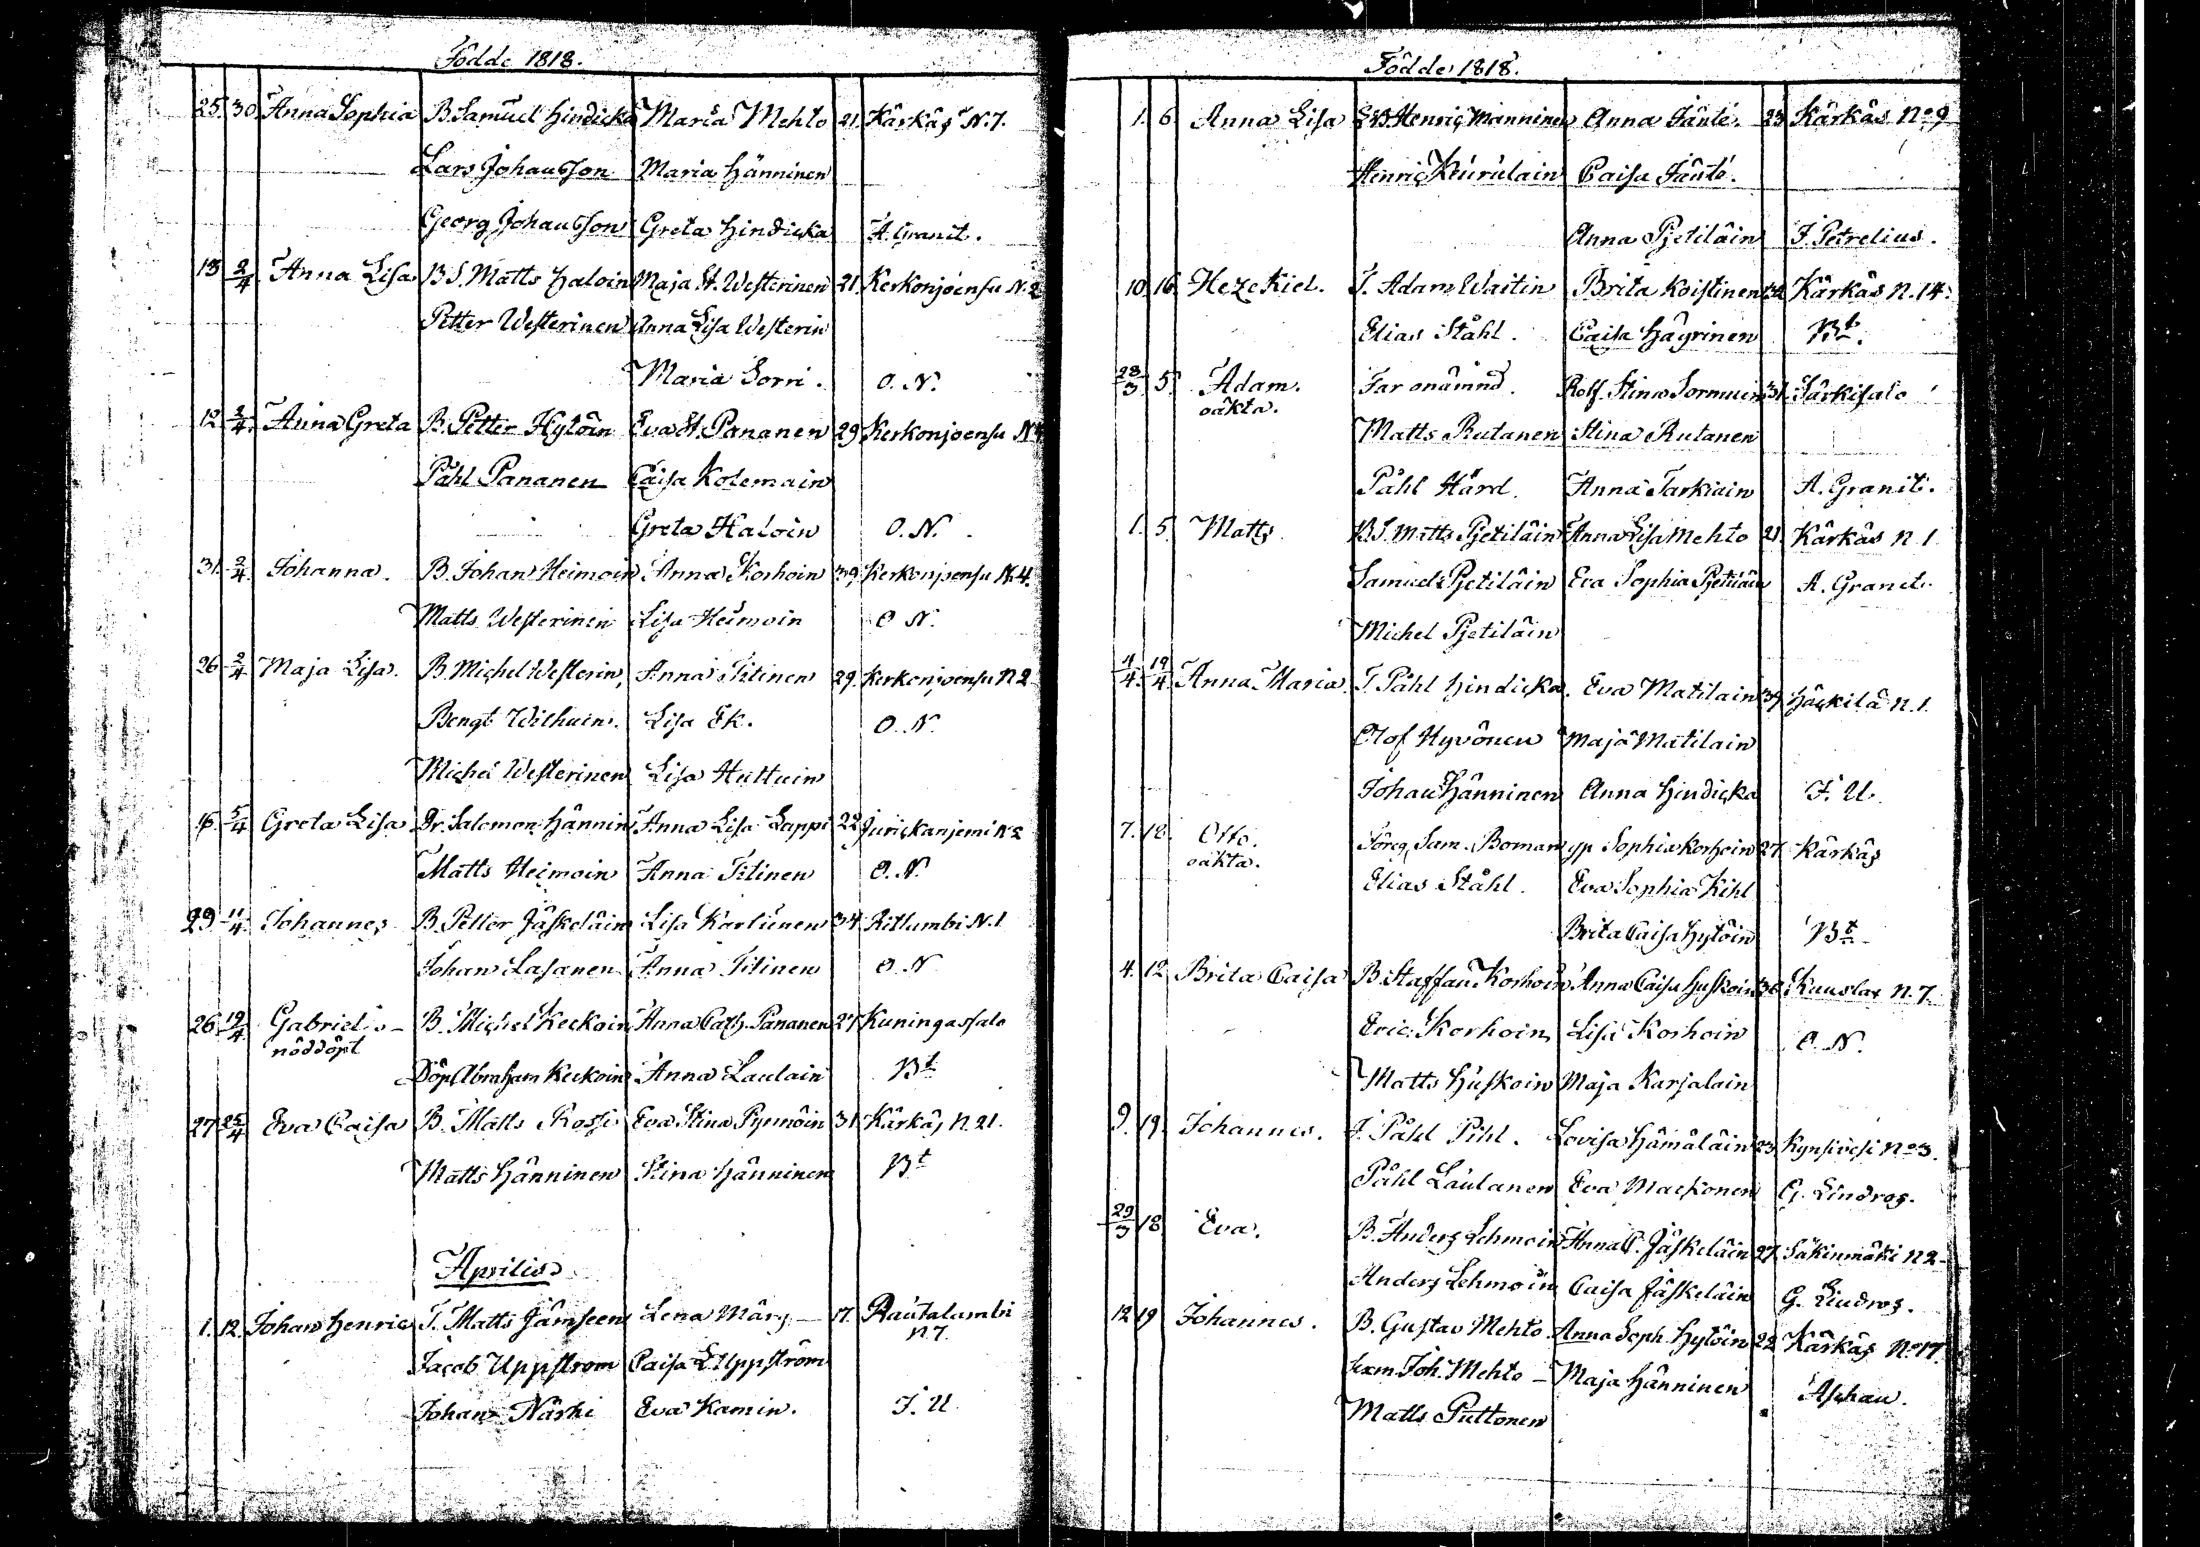 Födde 1818.
25. 30. Anna Sophia B. Samuel Hindicka Maria Mehto 21. Kärkäs N. 7.
Lars Johansson Maria Hänninen
Georg Johansson Greta Hindicka A. Granit.
13 2/4 Anna Lisa B. S. Matts Haloin Maja St. Westerinen 21. Kerkonjoensu N. 2
Petter Westerinen Anna Lisa Westerin
Maria Sorri. O. N.
12 2/4 Anna Greta B. Petter Hytöin Eva St. Pananen 29 Kerkonjoensu N
Påhl Pananen Caisa Kolemain
Greta Haloin O. N.
31. 2/4 Johanna. B. Johan Heimoin Anna Korhoin 39. Kerkonjoensu N. 4.
Matts Westerinen Lisa Heimoin O. N.
26 2/4 Maja Lisa. B. Michel Westerin, Anna Titinen 29. Kerkonjoensu N 2
Bengt Wilhuin. Lisa Ek. O. N.
Michel Westerinen Lisa Huttuin
16 5/4 Greta Lisa Dr. Salomon Hännin Anna Lisa Lappi 22 Jurickaniemi N 2
Matts Heimoin Anna Titinen O. N.
29 11/4 Johannes B. Petter Jäskeläin Lisa Kartunen 34. Kitlumbi N. 1
Johan Lasanen Anna Titinen O. N
26 19/4 Gabriel B. Michel Keckoin Anna Cath. Pananen 27. Kuningassalo
nöddöpt
Döp. Abraham Keckoin Anna Laulain Bt
27 25/4 Eva Caisa B. Matts Rossi Eva Stina Pynnöin 31. Kärkäs N. 21.
Matts Hänninen Stina Hänninen Bt
Aprilis
1. 12. Johan Henric T. Matts Jämseen Lena Märs 17. Rautalambi
N 7.
Jacob Uppström Caisa L. Uppström
Johan Närhi Eva Kamin. J. U.
Födde 1818.
1. 6 Anna Lisa Henric Manninen Anna Jäntti. 23 Kärkäs No 9
Henric Kiurulain Caisa Jäntti.
Anna Pjetiläin J. Petrelius.
10. 16 Hezekiel. T. Adam Waitin Brita Koistinen Kärkäs N. 14.
Elias Ståhl. Caisa Häyrinen Bt.
28/3 5. Adam. Far onämnd. Stina Sormuin 31. Särkisalo
oäkta.
Matts Rutanen Stina Rutanen
Påhl Hård. Anna Tarkiain A. Granit.
1. 5. Matts B. S. Matts Pjetiläin Anna Lisa Mehto 21. Kärkäs N. 1
Samuel Pjetiläin Eva Sophia Pjetiläin A. Granit.
Michel Pjetiläin
4/4 19/4 Anna Maria T. Påhl Hindicka. Eva Matilain 39 Häckilä N. 1.
Olof Hyvönen Maja Matilain
Johan Hänninen Anna Hindicka J. U.
7. 18. Otto. Föreg. Sam. Boman gp Sophia Korhoin 27. Kärkäs
oäkta.
Elias Ståhl. Eva Sophia Kihl
Brita Caisa Hytöin Bt
4. 12. Brita Caisa B. Staffan Korhoin Anna Caisa Huskoin 38 Kuuslax N. 7.
Eric Korhoin Lisa Korhoin O. N.
Matts Huskoin Maja Karjalain
9. 19. Johannes. T. Påhl Pihl. Lovisa Hämäläin 23. Kynsivesi No 3.
Påhl Laulanen Eva Mackonen G. Lindros.
29/3 18 Eva. B. Anders Lehmoin Anna C. Jäskeläin 27. Säkinmäki N 2
Anders Lehmoin Caisa Jäskeläin G. Lindros.
12 19 Johannes. B. Gustav Mehto Anna Soph. Hytöin 22 Kärkäs No 17.
Sexm. Joh. Mehto Maja Hänninen Aschan.
Matts Puttonen